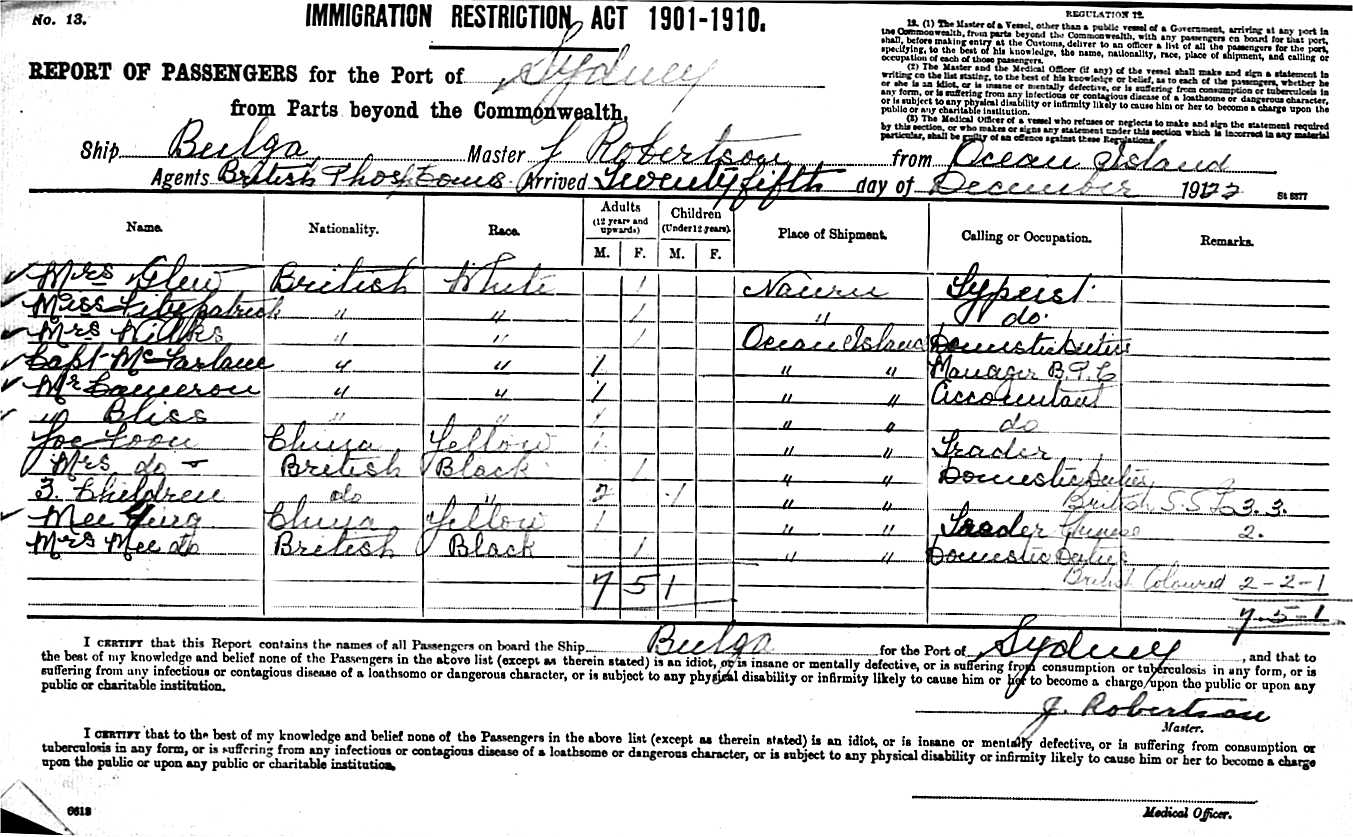 No. 13.
IMMIGRATION RESTRICTION ACT 1901-1910.
REGULATION 12.
12. (1) The Master of a Vessel, other than a public vessel of a Government, arriving at any port in
the Commonwealth, from parts beyond the Commonwealth, with any passengers on board for that port,
shall, before making entry at the Customs, deliver to an officer a list of all the passengers for the port,
specifying, to the best of his knowledge, the name, nationality, race, place of shipment, and calling or
occupation of each of those passengers.
(2) The Master and the Medical Officer (if any) of the vessel shall make and sign a statement in
writing on the list stating, to the best of his knowledge or belief, as to each of the passengers, whether he
or she is an idiot, or is insane or mentally defective, or is suffering from consumption or tuberculosis in
any form, or is suffering from any infectious or contagious disease of a loathsome or dangerous character,
or is subject to any physical disability or infirmity likely to cause him or her to become a charge upon the
public or any charitable institution.
(3) The Medical Officer of a vessel who refuses or neglects to make and sign the statement required
by this section, or who makes or signs any statement under this section which is incorrect in any material
particular, shall be guilty of an offence against these Regulations.
REPORT OF PASSENGERS for the Port of Sydney
from Parts beyond the Commonwealth,
Ship Bulga Master J Robertson from Ocean Island
Agents British Phos Coms Arrived Twenty fifth day of December 1922
Name. Nationality. Race. Adults (12 years and upwards) Children (Under 12 years). Place of Shipment. Calling or Occupation. Remarks.
M. F. M. F.
Mrs Glew British White 1 Nauru Typeist
Miss Fitzpatrick " " 1 " do.
Mrs Wilks " " 1 Ocean Island Domestic Duties
Capt McFarlane " " 1 " " Manager B.P.C
Mr Cameron " " 1 " " Accountant
" Bliss " " 1 " " do
Joe Loon China Yellow 1 " " Trader
Mrs do British Black 1 " " Domestic Duties
3. Children do " 2 1 " " British S.S 3. 3.
Mee China Yellow 1 " " Trader Chinese 2.
Mrs Mee do British Black 1 " " Domestic Duties
7 5 1 British Coloured 2-2-1
7-5-1
I CERTIFY that this Report contains the names of all Passengers on board the Ship Bulga for the Port of Sydney, and that to
the best of my knowledge and belief none of the Passengers in the above list (except as therein stated) is an idiot, or is insane or mentally defective, or is suffering from consumption or tuberculosis in any form, or is
suffering from any infectious or contagious disease of a loathsome or dangerous character, or is subject to any physical disability or infirmity likely to cause him or her to become a charge upon the public or upon any
public or charitable institution.
J. Robertson
Master.
I CERTIFY that to the best of my knowledge and belief none of the Passengers in the above list (except as therein stated) is an idiot, or is insane or mentally defective, or is suffering from consumption or
tuberculosis in any form, or is suffering from any infectious or contagious disease of a loathsome or dangerous character, or is subject to any physical disability or infirmity likely to cause him or her to become a charge
upon the public or upon any public or charitable institution.
6613
Medical Officer.